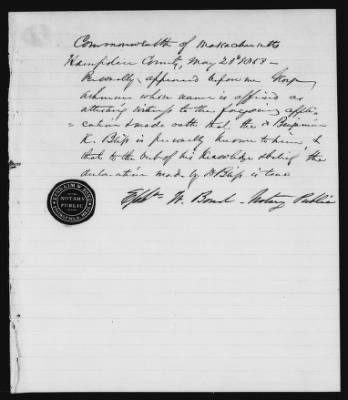 Commonwealth of Massachusetts
Hampden County, May 28th 1868 -
Personally appeared before me George
Ashmun whose name is affixed as
attesting witness to the foregoing appli-
=cation & made oath that the sd Benjamin
K. Bliss is personally known to him, &
that to the best of his knowledge & belief the
declaration made by sd Bliss is true
Ephm W. Bond - Notary Public
EPHRAIM W. BOND
NOTARY
PUBLIC
SPRINGFIELD, MASS.